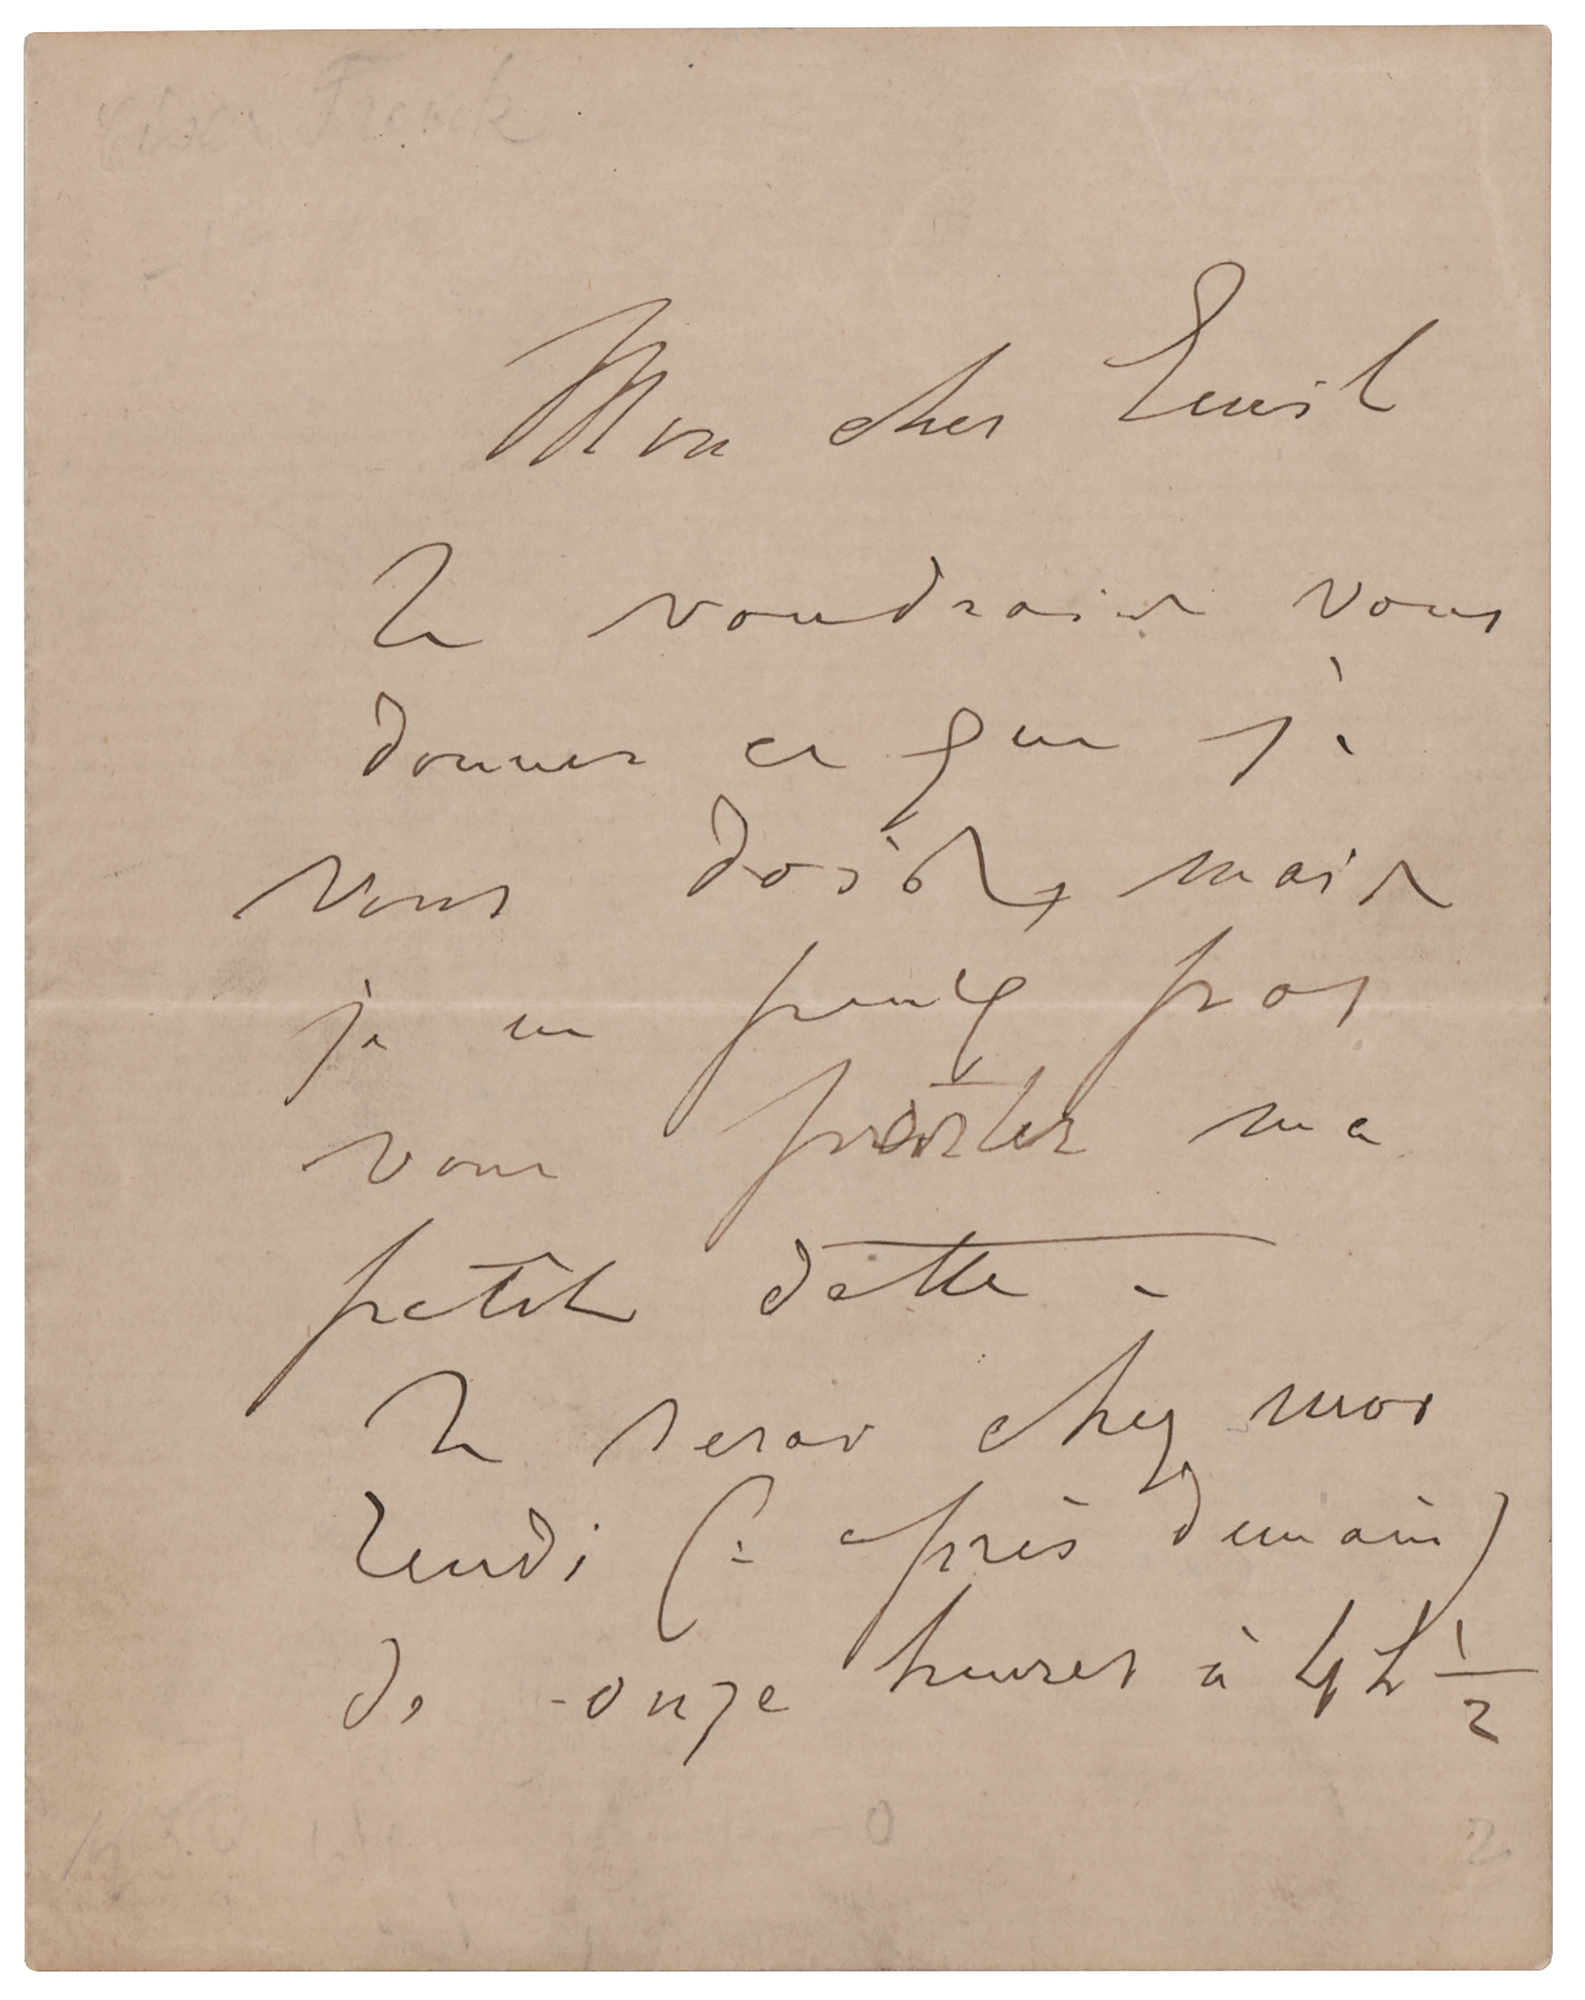 Franck
Mon cher Emil
Je voudrais vous
donner ce que je
vous dois, mais
je ne peux pas
vous porter ma
petite dette.
Je serai chez moi
Lundi ( après demain)
de onze heures à 4 h ½
2